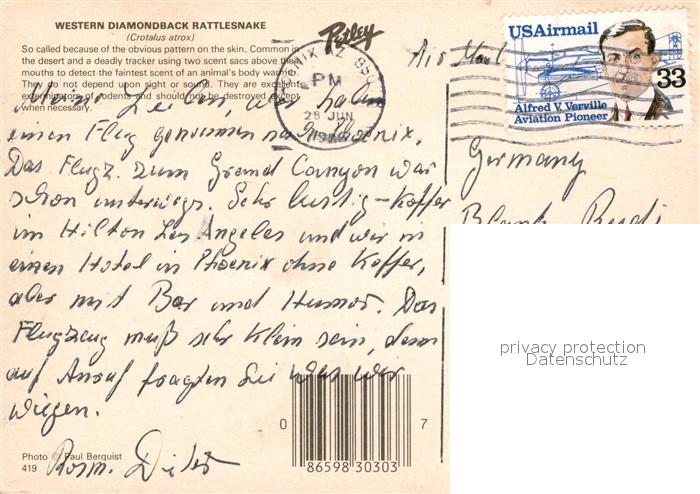 WESTERN DIAMONDBACK RATTLESNAKE
(Crotalus atrox)
So called because of the obvious pattern on the skin. Common in
the desert and a deadly tracker using two scent sacs above the
mouths to detect the faintest scent of an animal's body warmth.
They do not depend upon sight or sound. They are excellent
exterminators of rodents and should not be destroyed except
when necessary.
Petley
PHOENIX AZ 850
PM
28 JUN
Air Mail
USAirmail
33
Alfred V. Verville
Aviation Pioneer
Meine Lieben, wir haben
einen Flug genommen nach Phoenix.
Das Flugz. zum Grand Canyon war
schon unterwegs. Sehr lustig – Koffer
im Hilton Los Angeles und wir in
einen Hotel in Phoenix ohne Koffer,
aber mit Bar und Humor. Das
Flugzeug muß sehr klein sein, denn
auf Anruf fragten Sie was wir
wiegen.
Rosm. Dieter
Germany
Blank Rudi
privacy protection
Datenschutz
Photo © Paul Berquist
419
0 86598 30303 7